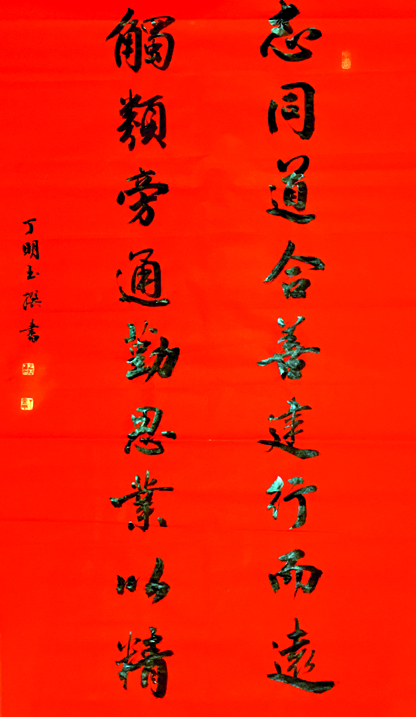 志同道合善建行而遠
觸類旁通勤思業以精
丁明玉撰書